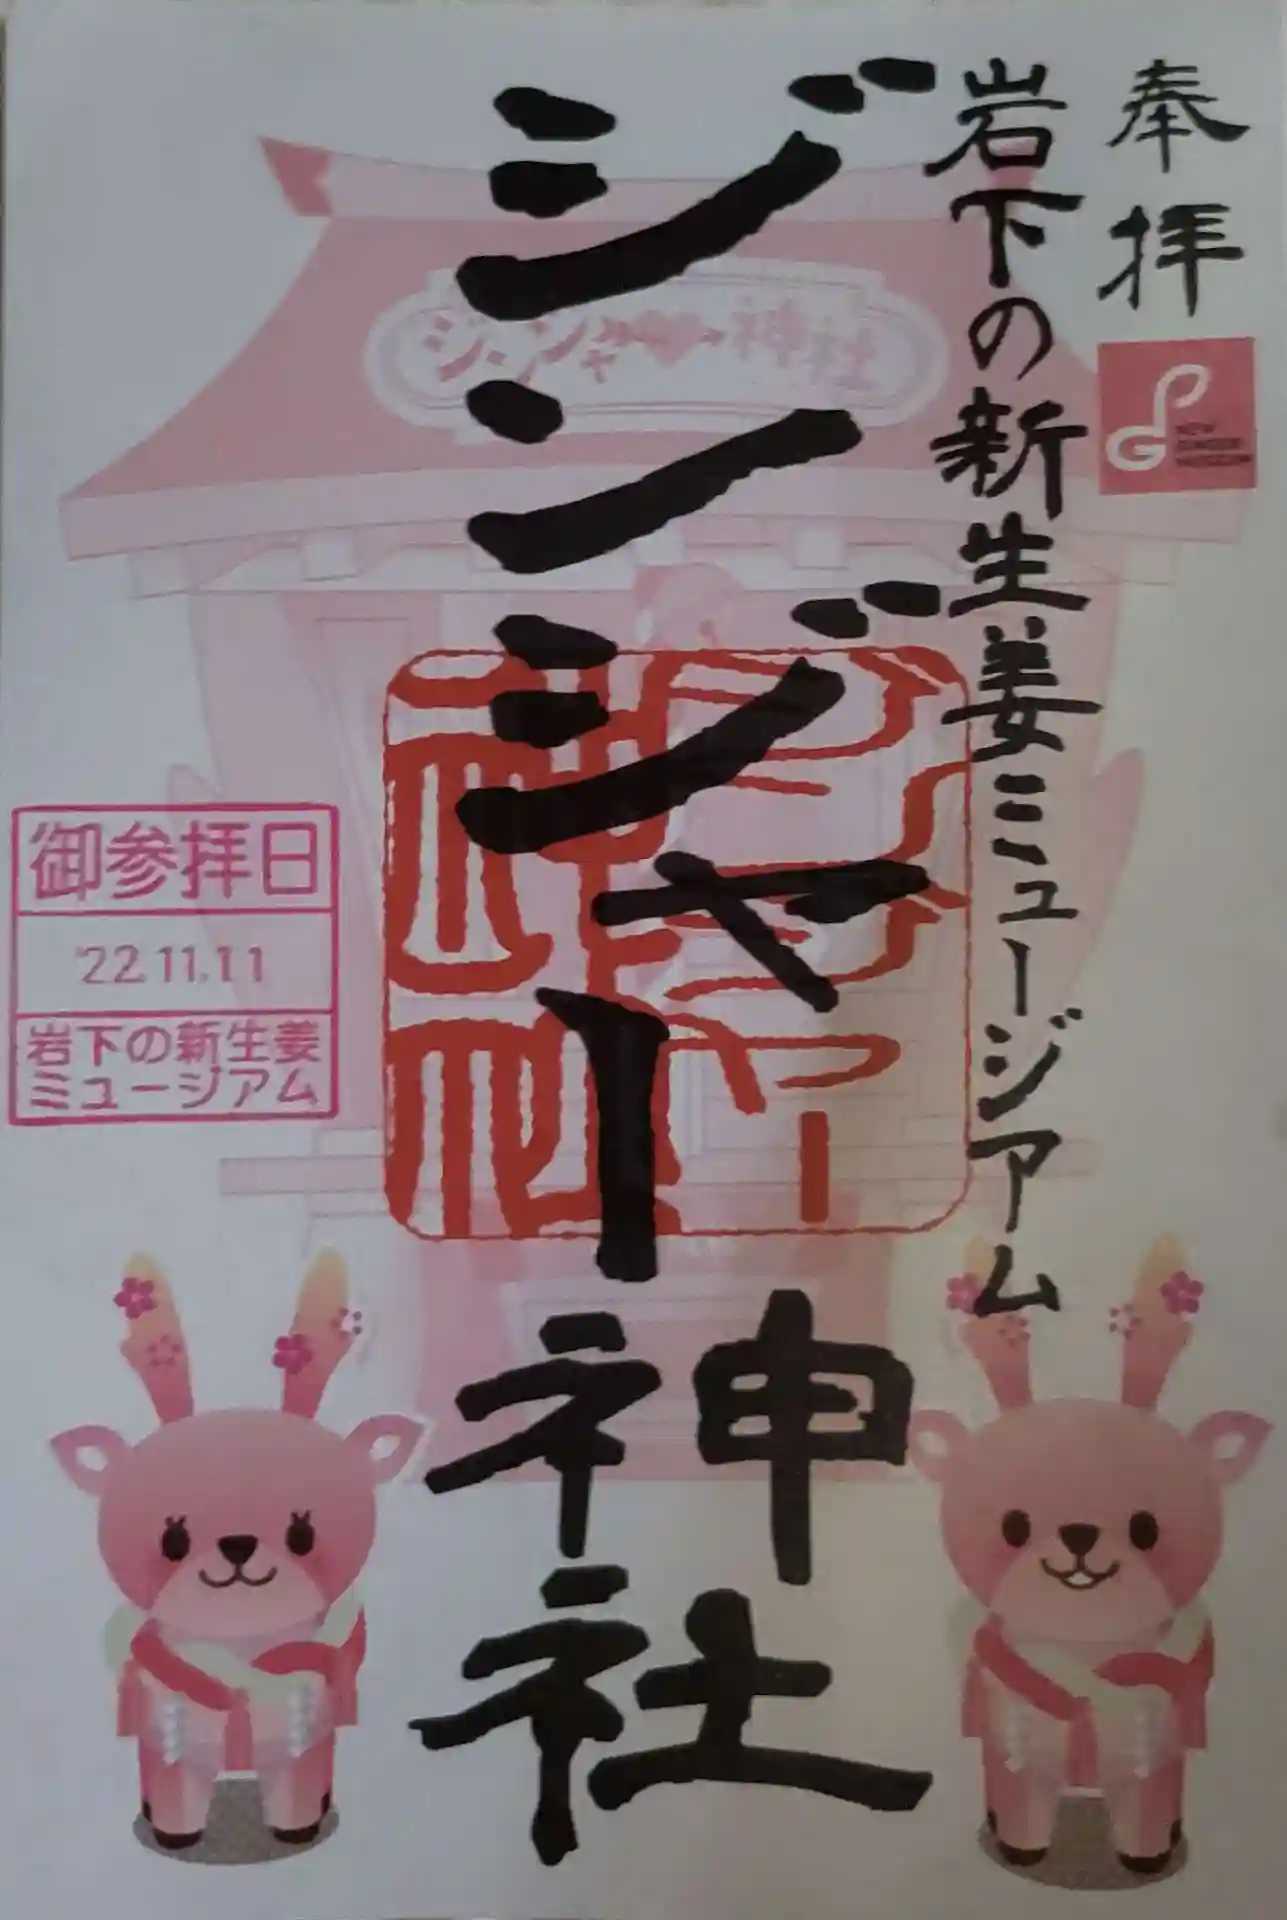 奉拝
岩下の新生姜ミュージアム
ジンジャー神社
ジンジャー神社
NEW
GINGER
MUSEUM
ジンジャー神社
御参拝日
'22.11.11
岩下の新生姜
ミュージアム